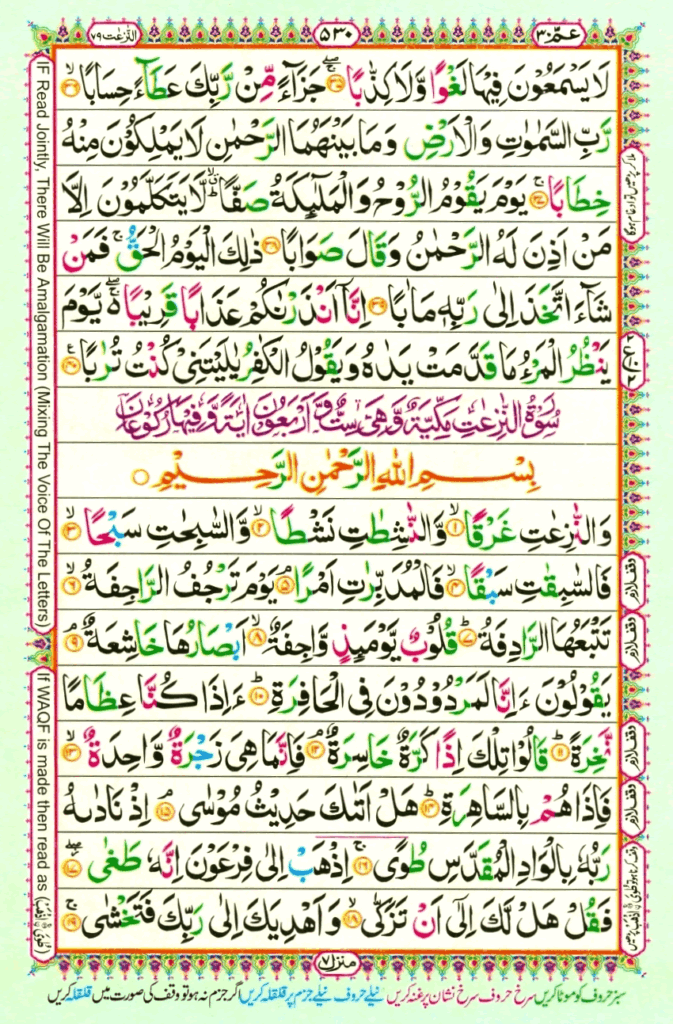 عَمَّ ٣٠
٥٣٠
النّٰزعٰت ٧٩
لَا يَسْمَعُوْنَ فِيْهَا لَغْوًا وَّلَا كِذّٰبًا ۝٣٥ۚ جَزَآءً مِّنْ رَّبِّكَ عَطَآءً حِسَابًا ۝٣٦ۙ
رَّبِّ السَّمٰوٰتِ وَالْاَرْضِ وَمَا بَيْنَهُمَا الرَّحْمٰنِ لَا يَمْلِكُوْنَ مِنْهُ
خِطَابًا ۝٣٧ۚ يَوْمَ يَقُوْمُ الرُّوْحُ وَالْمَلٰٓئِكَةُ صَفًّا ۙۗ لَّا يَتَكَلَّمُوْنَ اِلَّا
مَنْ اَذِنَ لَهُ الرَّحْمٰنُ وَقَالَ صَوَابًا ۝٣٨ ذٰلِكَ الْيَوْمُ الْحَقُّ ۚ فَمَنْ
شَآءَ اتَّخَذَ اِلٰى رَبِّهٖ مَاٰبًا ۝٣٩ اِنَّاۤ اَنْذَرْنٰكُمْ عَذَابًا قَرِيْبًا ۖۚ۬ يَّوْمَ
يَنْظُرُ الْمَرْءُ مَا قَدَّمَتْ يَدٰهُ وَيَقُوْلُ الْكٰفِرُ يٰلَيْتَنِيْ كُنْتُ تُرٰبًا ۝٤٠ع
سُوْرَةُ النّٰزِعٰتِ مَكِّيَّةٌ وَّهِيَ سِتٌّ وَّاَرْبَعُوْنَ اٰيَةً وَّفِيْهَا رُكُوْعَانِ
بِسْمِ اللّٰهِ الرَّحْمٰنِ الرَّحِيْمِ
وَالنّٰزِعٰتِ غَرْقًا ۝١ۙ وَّالنّٰشِطٰتِ نَشْطًا ۝٢ۙ وَّالسّٰبِحٰتِ سَبْحًا ۝٣ۙ
فَالسّٰبِقٰتِ سَبْقًا ۝٤ۙ فَالْمُدَبِّرٰتِ اَمْرًا ۝٥ۘ يَوْمَ تَرْجُفُ الرَّاجِفَةُ ۝٦ۙ
تَتْبَعُهَا الرَّادِفَةُ ۝٧ؕ قُلُوْبٌ يَّوْمَئِذٍ وَّاجِفَةٌ ۝٨ۙ اَبْصَارُهَا خَاشِعَةٌ ۝٩ۘ
يَقُوْلُوْنَ ءَاِنَّا لَمَرْدُوْدُوْنَ فِي الْحَافِرَةِ ۝١٠ؕ ءَاِذَا كُنَّا عِظَامًا
نَّخِرَةً ۝١١ؕ قَالُوْا تِلْكَ اِذًا كَرَّةٌ خَاسِرَةٌ ۝١٢ۘ فَاِنَّمَا هِيَ زَجْرَةٌ وَّاحِدَةٌ ۝١٣ۙ
فَاِذَا هُمْ بِالسَّاهِرَةِ ۝١٤ؕ هَلْ اَتٰىكَ حَدِيْثُ مُوْسٰى ۝١٥ۘ اِذْ نَادٰىهُ
رَبُّهٗ بِالْوَادِ الْمُقَدَّسِ طُوًى ۝١٦ۚ اِذْهَبْ اِلٰى فِرْعَوْنَ اِنَّهٗ طَغٰى ۝١٧ۖ
فَقُلْ هَلْ لَّكَ اِلٰٓى اَنْ تَزَكّٰى ۝١٨ۙ وَاَهْدِيَكَ اِلٰى رَبِّكَ فَتَخْشٰى ۝١٩ۚ
وقف لازم
وقف لازم
وقف لازم
وقف لازم
IF Read Jointly, There Will Be Amalgamation (Mixing The Voice Of The Letters)
If WAQF is made then read as (طُوًى ۝ اِذْهَبْ)
منزل ٧
سبز حروف کو موٹا کریں سرخ حروف سرخ نشان پر غنہ کریں نیلے حروف نیلے جزم پر قلقلہ کریں اگر جزم نہ ہو تو وقف کی صورت میں قلقلہ کریں